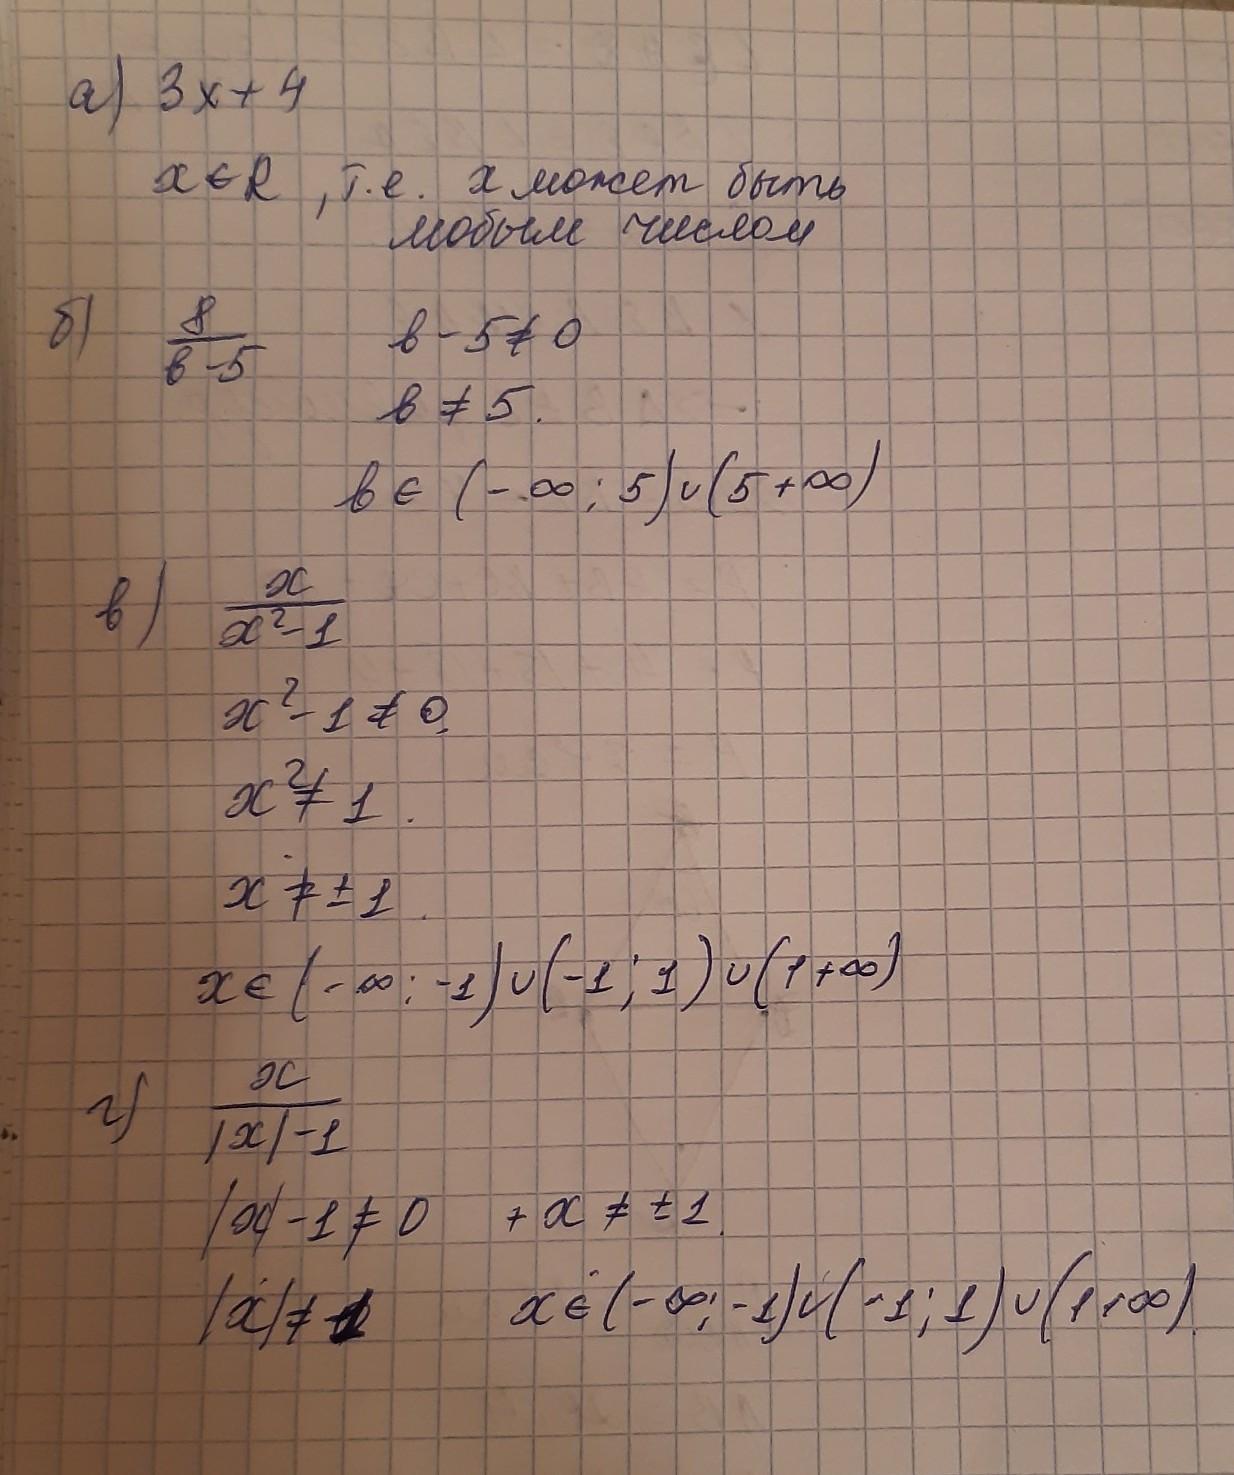 а) 3x+4
x∈R, т.е. x может быть
любым числом
б) 8/(в-5) в-5≠0
в≠5.
в∈(-∞; 5)∪(5+∞)
в) x/(x²-1)
x²-1≠0.
x²≠1.
x≠±1.
x∈(-∞;-1)∪(-1;1)∪(1+∞)
г) x/(|x|-1)
|x|-1≠0 + x≠±1.
|x|≠1 x∈(-∞;-1)∪(-1;1)∪(1+∞).